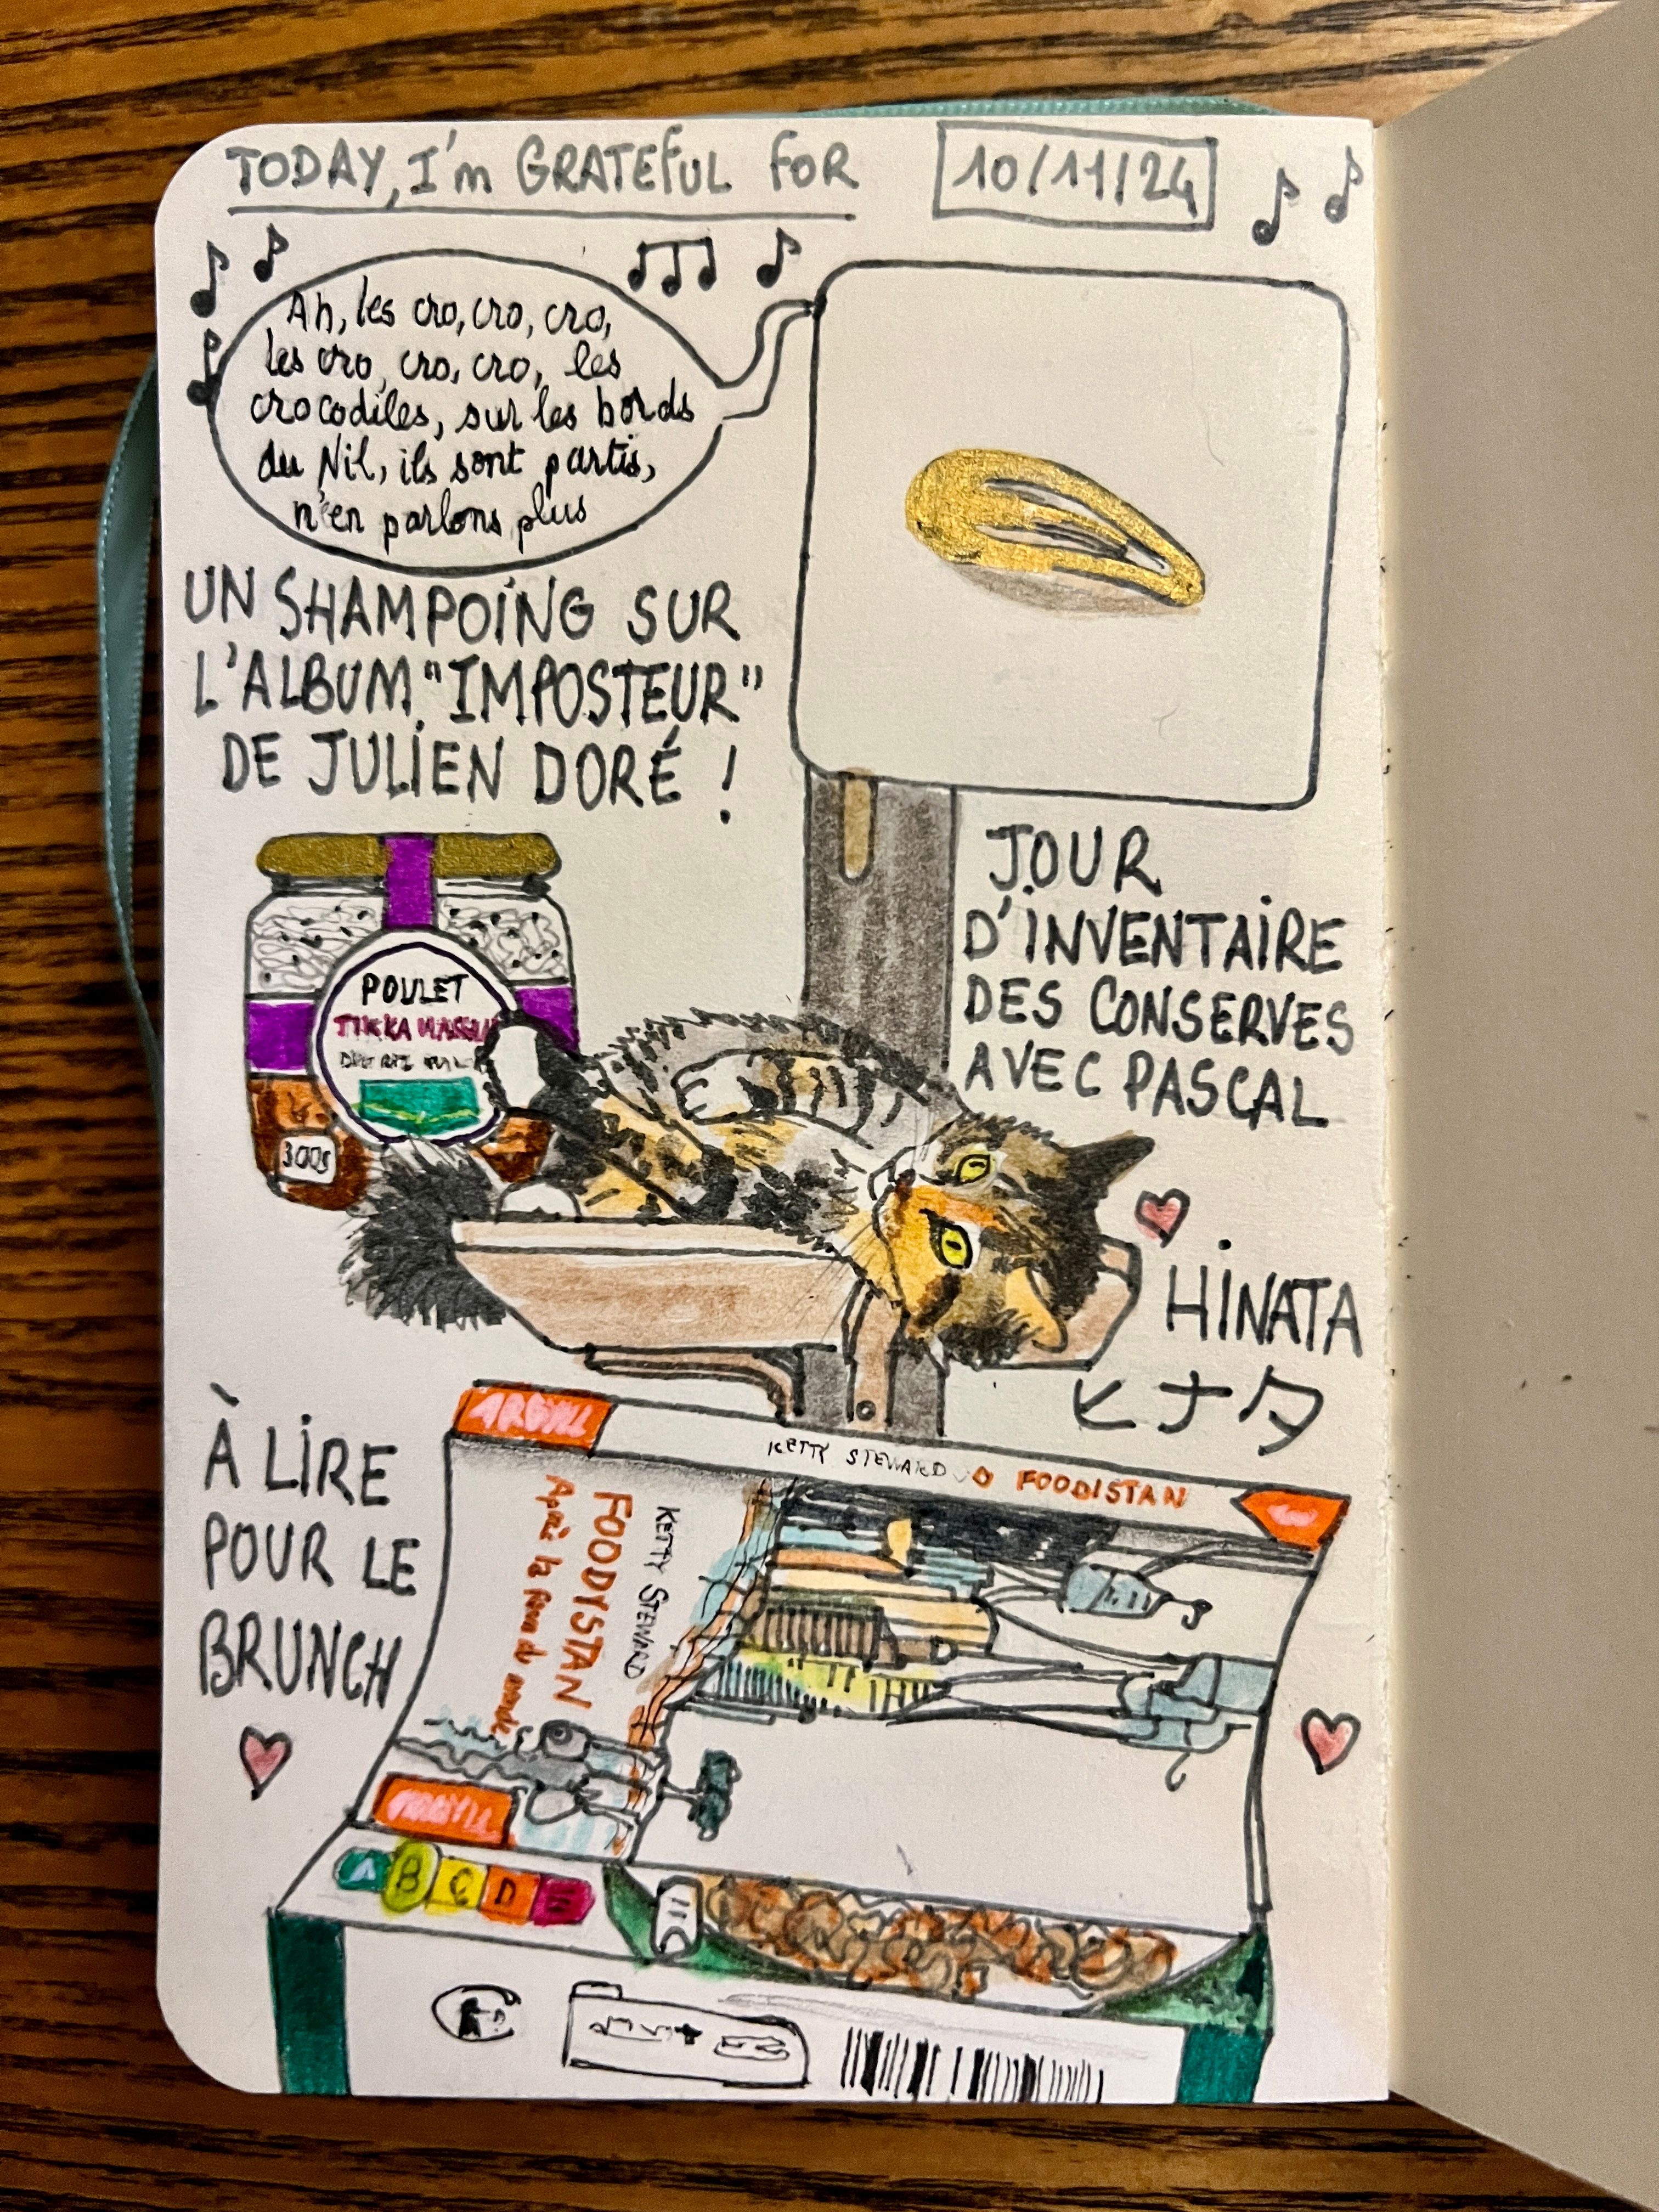 TODAY, I'm GRATEFUL FOR
10/11/24
Ah, les cro, cro, cro,
les cro, cro, cro, les
crocodiles, sur les bords
du Nil, ils sont partis,
n'en parlons plus
UN SHAMPOING SUR
L'ALBUM "IMPOSTEUR"
DE JULIEN DORÉ !
POULET
TIKKA
300g
JOUR
D'INVENTAIRE
DES CONSERVES
AVEC PASCAL
HINATA
ヒナタ
À LIRE
POUR LE
BRUNCH
KETTY STEWARD FOODISTAN
KETTY STEWARD
FOODYSTAN
Après la fin du monde
A B C D E